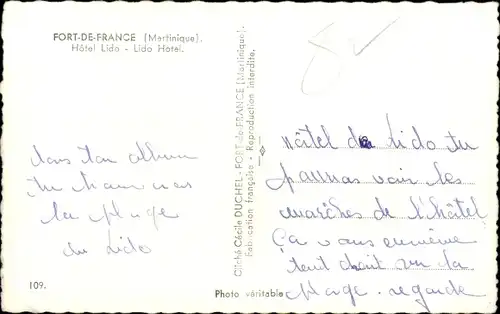 FORT-DE-FRANCE (Martinique).
Hôtel Lido - Lido Hotel.
dans ton album
tu trouveras
la plage
du Lido
109.
Cliché Cécile DUCHEL - FORT-de-FRANCE (Martinique)
Fabrication française - Reproduction interdite.
Photo véritable
hôtel du Lido tu
pourras voir les
marches de l'hôtel
Ça vous emmène
tout droit sur la
plage. regarde